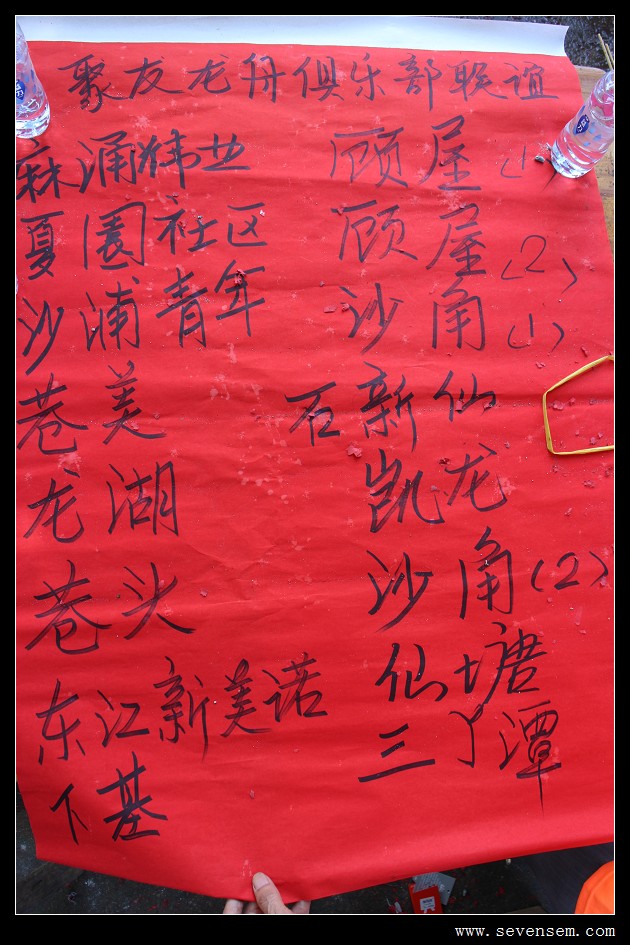 聚友龙舟俱乐部联谊
麻涌伟业 顾屋(1)
夏園社区 顾屋(2)
沙浦青年 沙角(1)
巷美 石新仙
龙湖 凯龙
巷头 沙角(2)
东江新美诺 仙塘
下基 三丫潭
www.sevensem.com